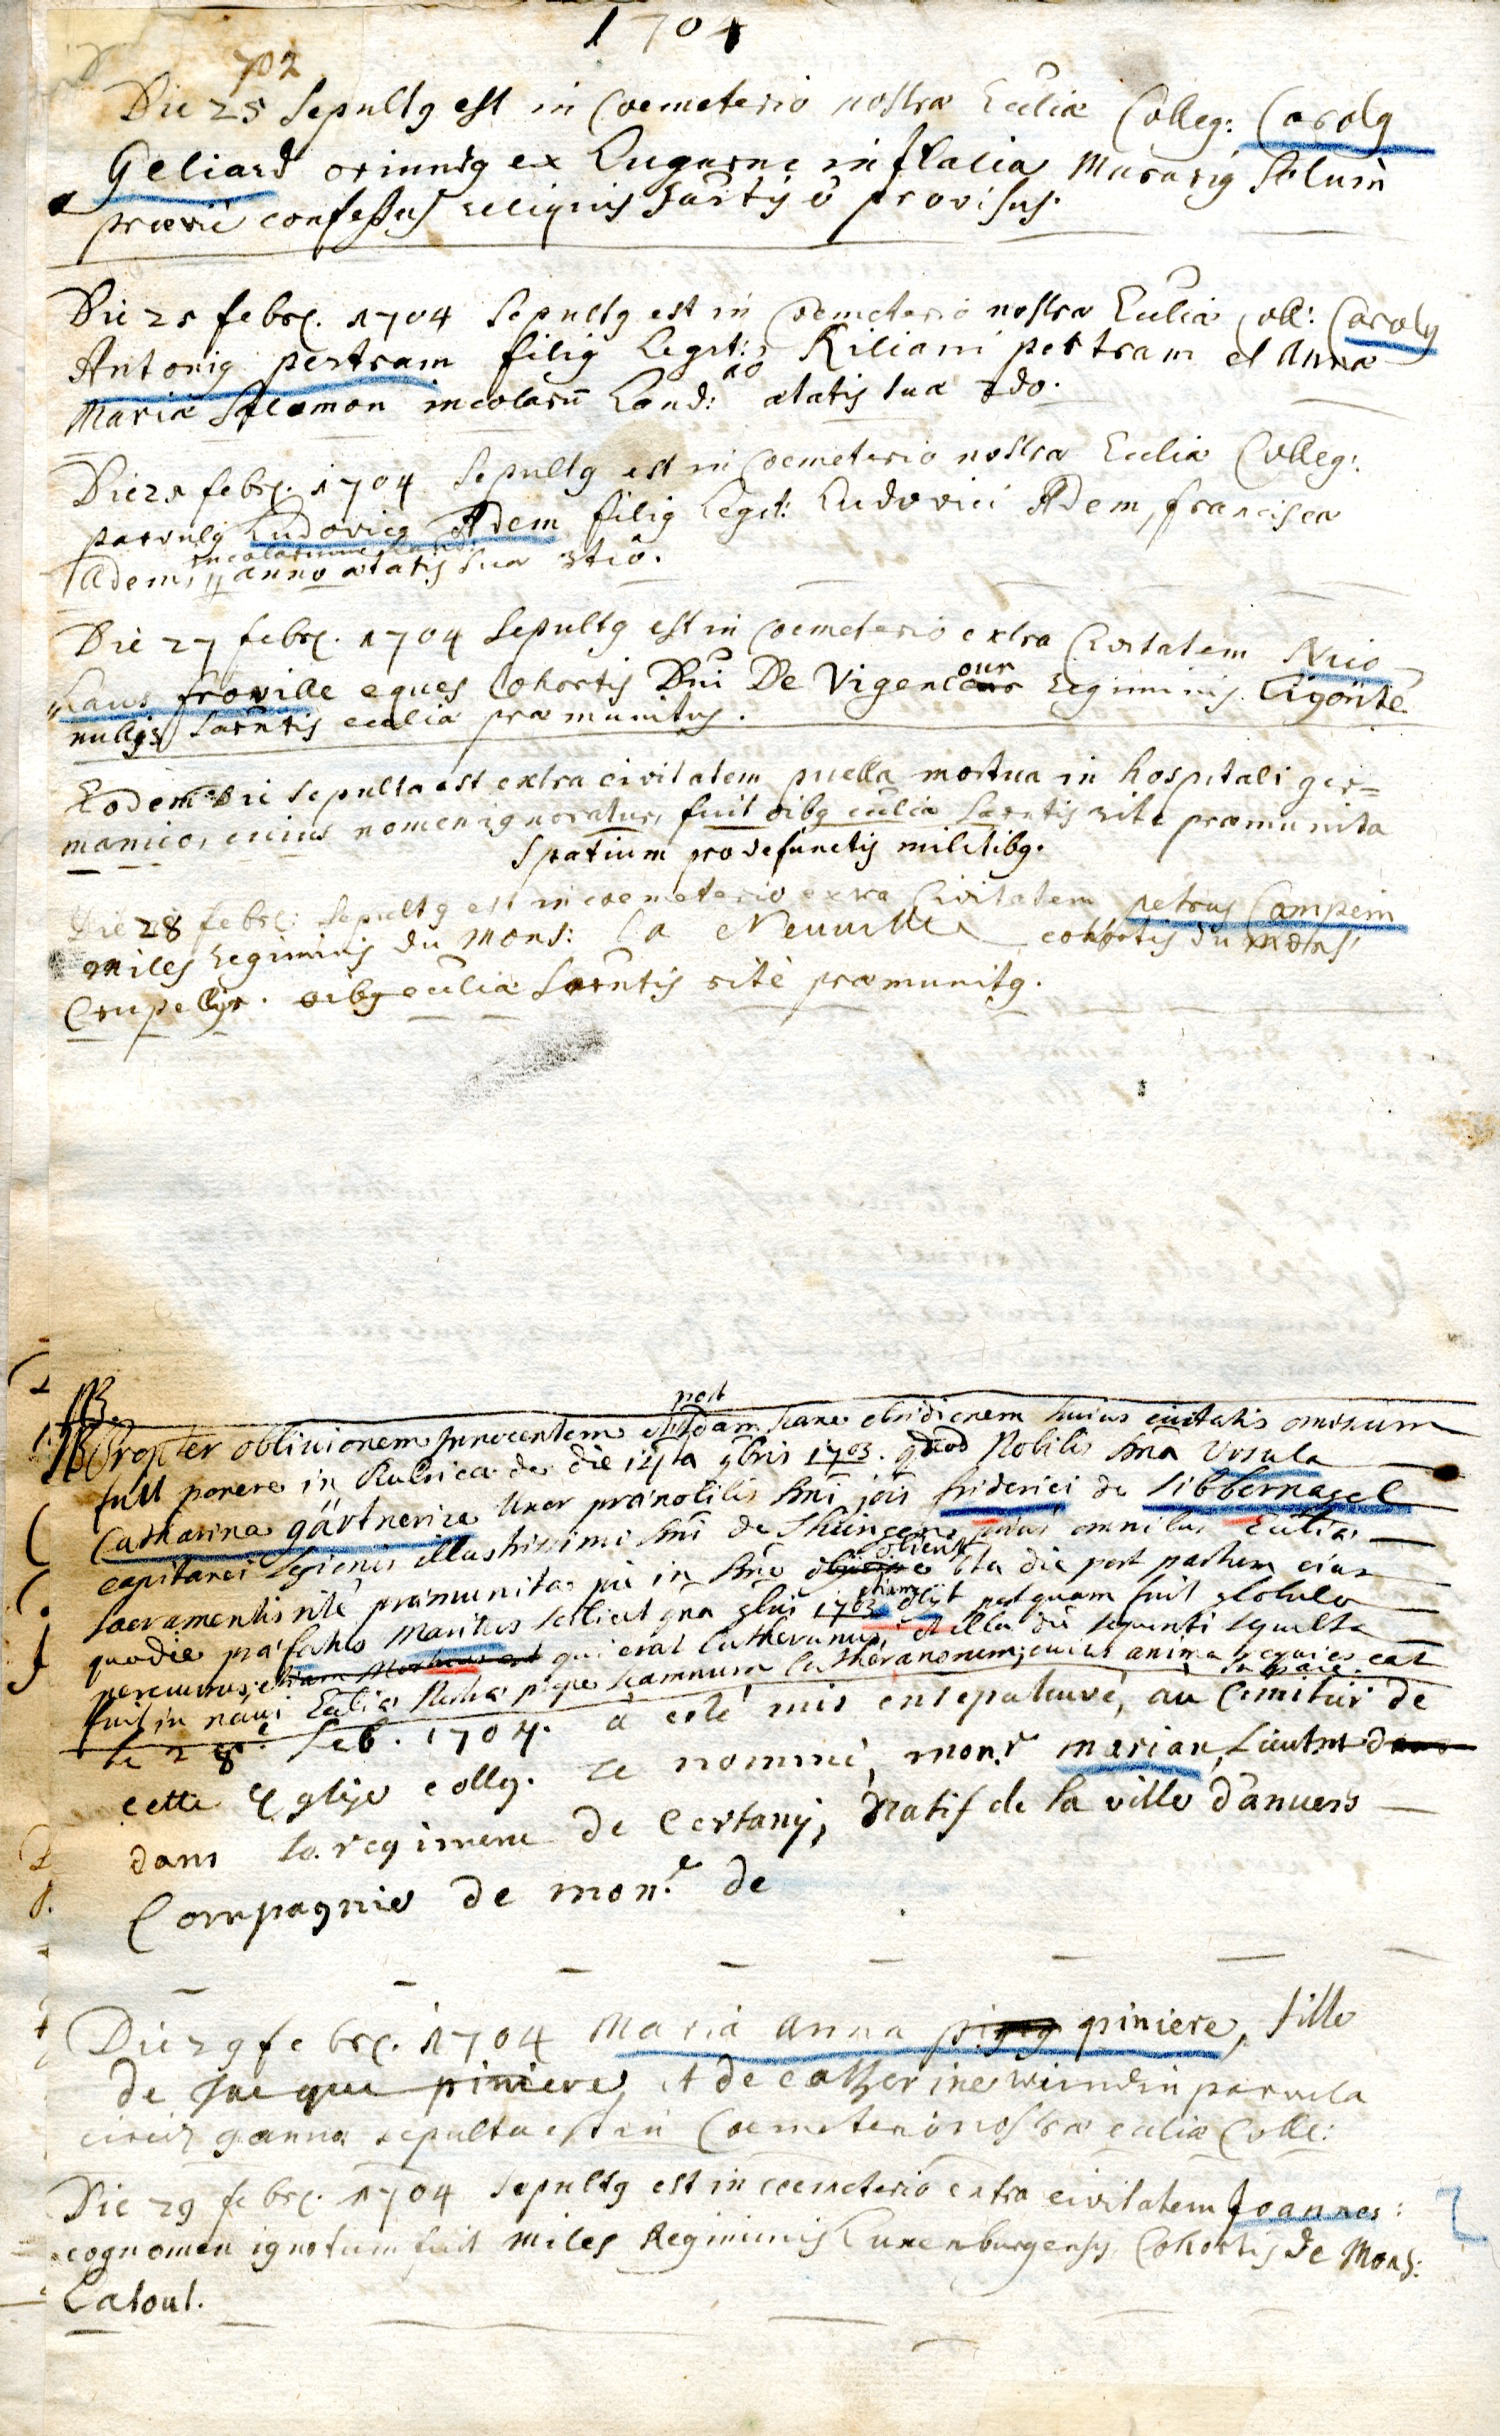 1704
702
Die 25 Sepultg est in Coemeterio nostra Eccliæ Colleg: Carolg
Geliard oriundg ex Lugarne in Italia Murarig Solum
prævie confessus reliquis Sactis provisus.
Die 25 febrę. 1704 Sepultg est in Coemeterio nostra Ecclia Coll: Carolg
Antonig pertram filig Legit: Kiliani pertram et Anna
Maria Salomon incolarū Land: ætatis sua 2do.
ao
Die 25 febrę. 1704 Sepultg est in Coemeterio nostra Ecclia Colleg:
parvulg Ludovicg Adem filig Legit: Ludovici Adem, francisca
incolarum Land:
Adem, anno ætatis sua 3tio.
Die 27 febrę. 1704 Sepultg est in Coemeterio extra Civitatem Nico
laus froville eques Cohortis Dni De Vigencour Regiminis
nullis Sacntis ecclia præmunitus.
Eodem Die sepulta est extra civitatem puella mortua in hospitali ger=
manico, cuius nomen ignoratur, fuit oibg ecclia Sacntis rite præmunita
Spatium pro defunctis militibg.
Die 28 febrę: Sepultg est in coemeterio extra Civitatem petrus Campein
miles Regiminis du Mons: la Neuville cohortis du Mons:
Crupellijr. oibg ecclia Sacntis ritè præmunitg.
NB
post
NB Propter obliuionem innocentem hanc obsidionem huius ciuitatis omissum
fuit ponere in Rubrica de die 14ta 9bris 1703. quod Nobilis dna Vrsula
Catharina gärtnerica uxor prænobilis dni jois friderici de Sibbernagel
capitanei legionis illustrissimi dni de Thüngen, omnibus Ecclia
Sacramentis ritè præmunita pie in dno obierit die post partum eius
quo die præfatus Maritus scilicet 9bris 1703 etiam obijt postquam fuit globulo
percussus, qui erat Lutheranus, et illa die sequenti sepulta
fuit in naui Ecclia nostra prope scamnum Lutheranorum; cuius anima requiescat
in pace.
le 28e feb. 1704. à esté mis en sepulture, au Cimitier de
cette Eglise colleg. le nommé, monr. marian, Lieutnt
dans le regiment de Certany, Natif de la ville d'anuers
Compagnie de monr. de
Die 29 febrę. 1704 Maria Anna piniere, fille
de Jacque piniere, et de catherine windin parvula
circiter 9 annor sepulta est in Coemeterio nostra ecclia Colle:
Die 29 febrę. 1704 Sepultg est in coemeterio extra civitatem Joannes:
cognomen ignotum fuit miles Regiminis Luxenburgensis Cohortis de Mons:
Latout.